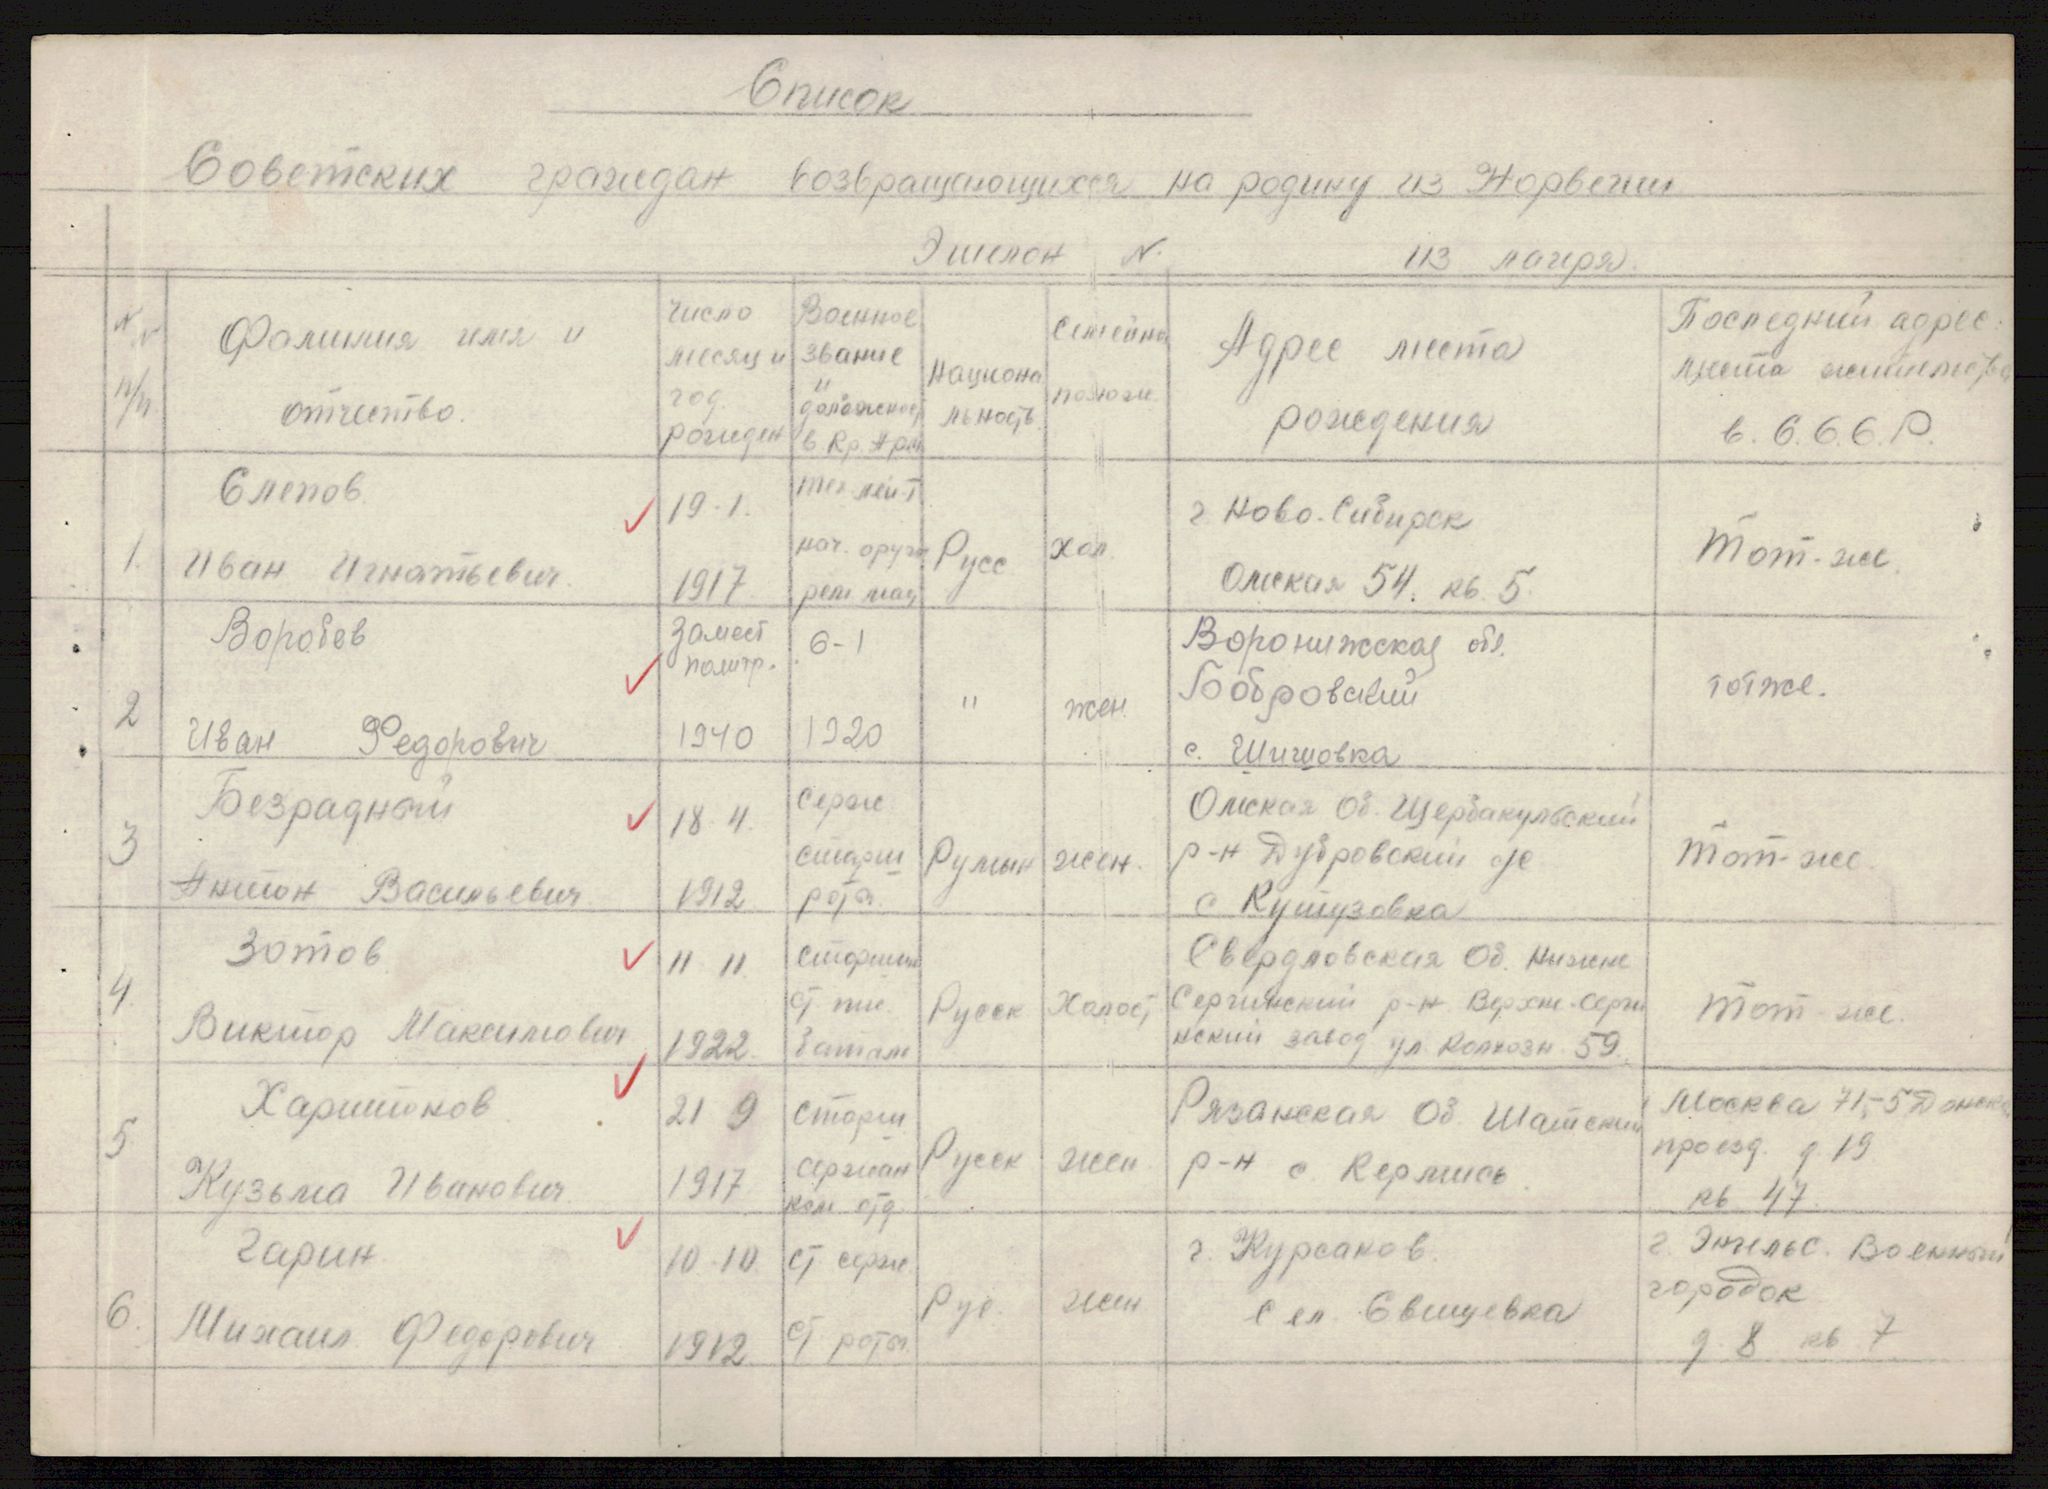 Список
Советских граждан возвращающихся на родину из Норвегии
Эшелон N. из лагеря.
N N п/п
Фамилия имя и
отчество.
число
месяц и
год.
рожден
Военное
звание
и
должност
в Кр. Арм
Национа
льность
Семейно
полож.
Адрес места
рождения
Последний адрес
места жительства
в. С.С.С.Р.
1.
Слепов
Иван Игнатьевич.
19-1.
1917.
тех лейт
нач. оруж
рем маш
Русс
Хол.
г Ново-Сибирск
Омская 54. кв. 5.
Тот-же.
2
Воробев
Иван Федорович
Замест
политр.
1940
6-1
1920
"
жен.
Воронижская обл.
Бобровский
с. Шишовка
тотже.
3
Безрадный
Антон Васильевич
18. 4.
1912.
Серж.
старш
роты.
Румын
жен.
Омская Об. Щербакульский
р-н Дубровский с/с
с Кутузовка
Тот-же.
4.
Зотов
Виктор Максимович
11 11.
1922.
старшин
ст пис.
батал
Русск
Холост
Свердловская Об. Нижне
Сергинский р-н. Верхне-Серги
нский завод ул. Колхозн. 59.
Тот-же.
5
Харитонов
Кузьма Иванович.
21 9
1917.
Старш
сержан
ком. отд.
Русск
жен.
Рязанская Об. Шатский
р-н с. Кермись.
Москва 71,-5 Донск
проезд. д. 19
кв. 47.
6.
Гарин
Михаил Федорович
10-10.
1912
ст серж.
ст роты.
Рус.
жен
г. Курсаков.
Сел. Свищевка
г. Энгельс. Военный
городок
д. 8 кв 7